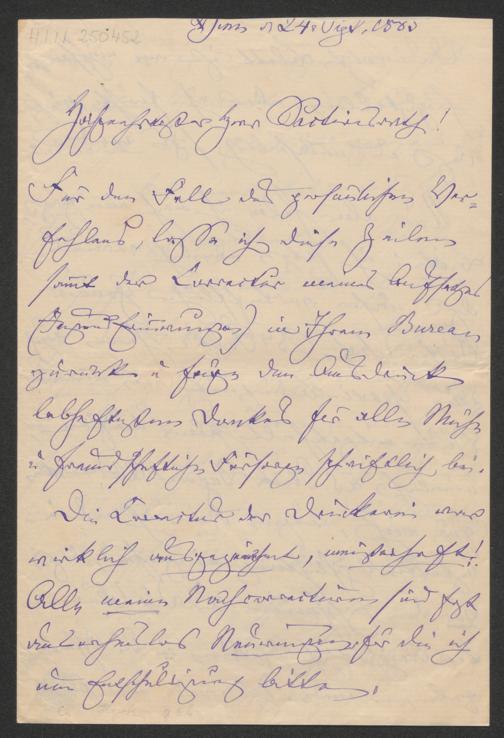 H.I.N. 250452
Wien d 24. Sept. 1883
Hochverehrter Herr Sectionsrath!
Für den Fall des persönlichen Ver-
fehlens, lasse ich diese Zeilen
sammt der Correctur meines Aufsatzes
in Ihrem Bureau
zurück u füge den Ausdruck
lebhaftesten Dankes für alle Mühe
u freundschaftliche Fürsorge schriftlich bei.
Die Correctur der Druckerei war
wirklich ausgezeichnet, meisterhaft!
Alle meine Nachcorrecturen sind fast
ausnahmslos Neuerungen für die ich
um Entschuldigung bitte,